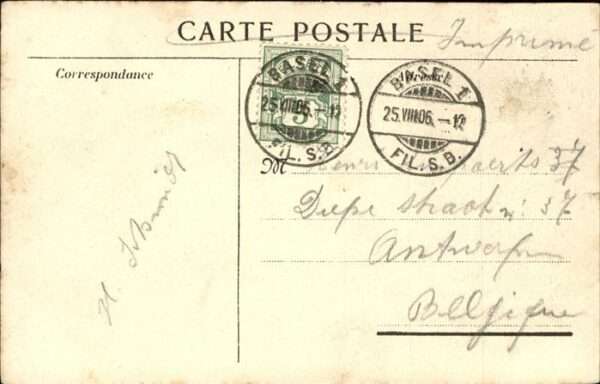 CARTE POSTALE
Imprimé
Correspondance
BASEL 1
25.VIII.06.–12
FIL. S. B.
5
BASEL 1
25.VIII.06.–12
FIL. S. B.
M Henri 37
Diepe straat nº 37
Antwerpen
Belgique
H. Schmidt